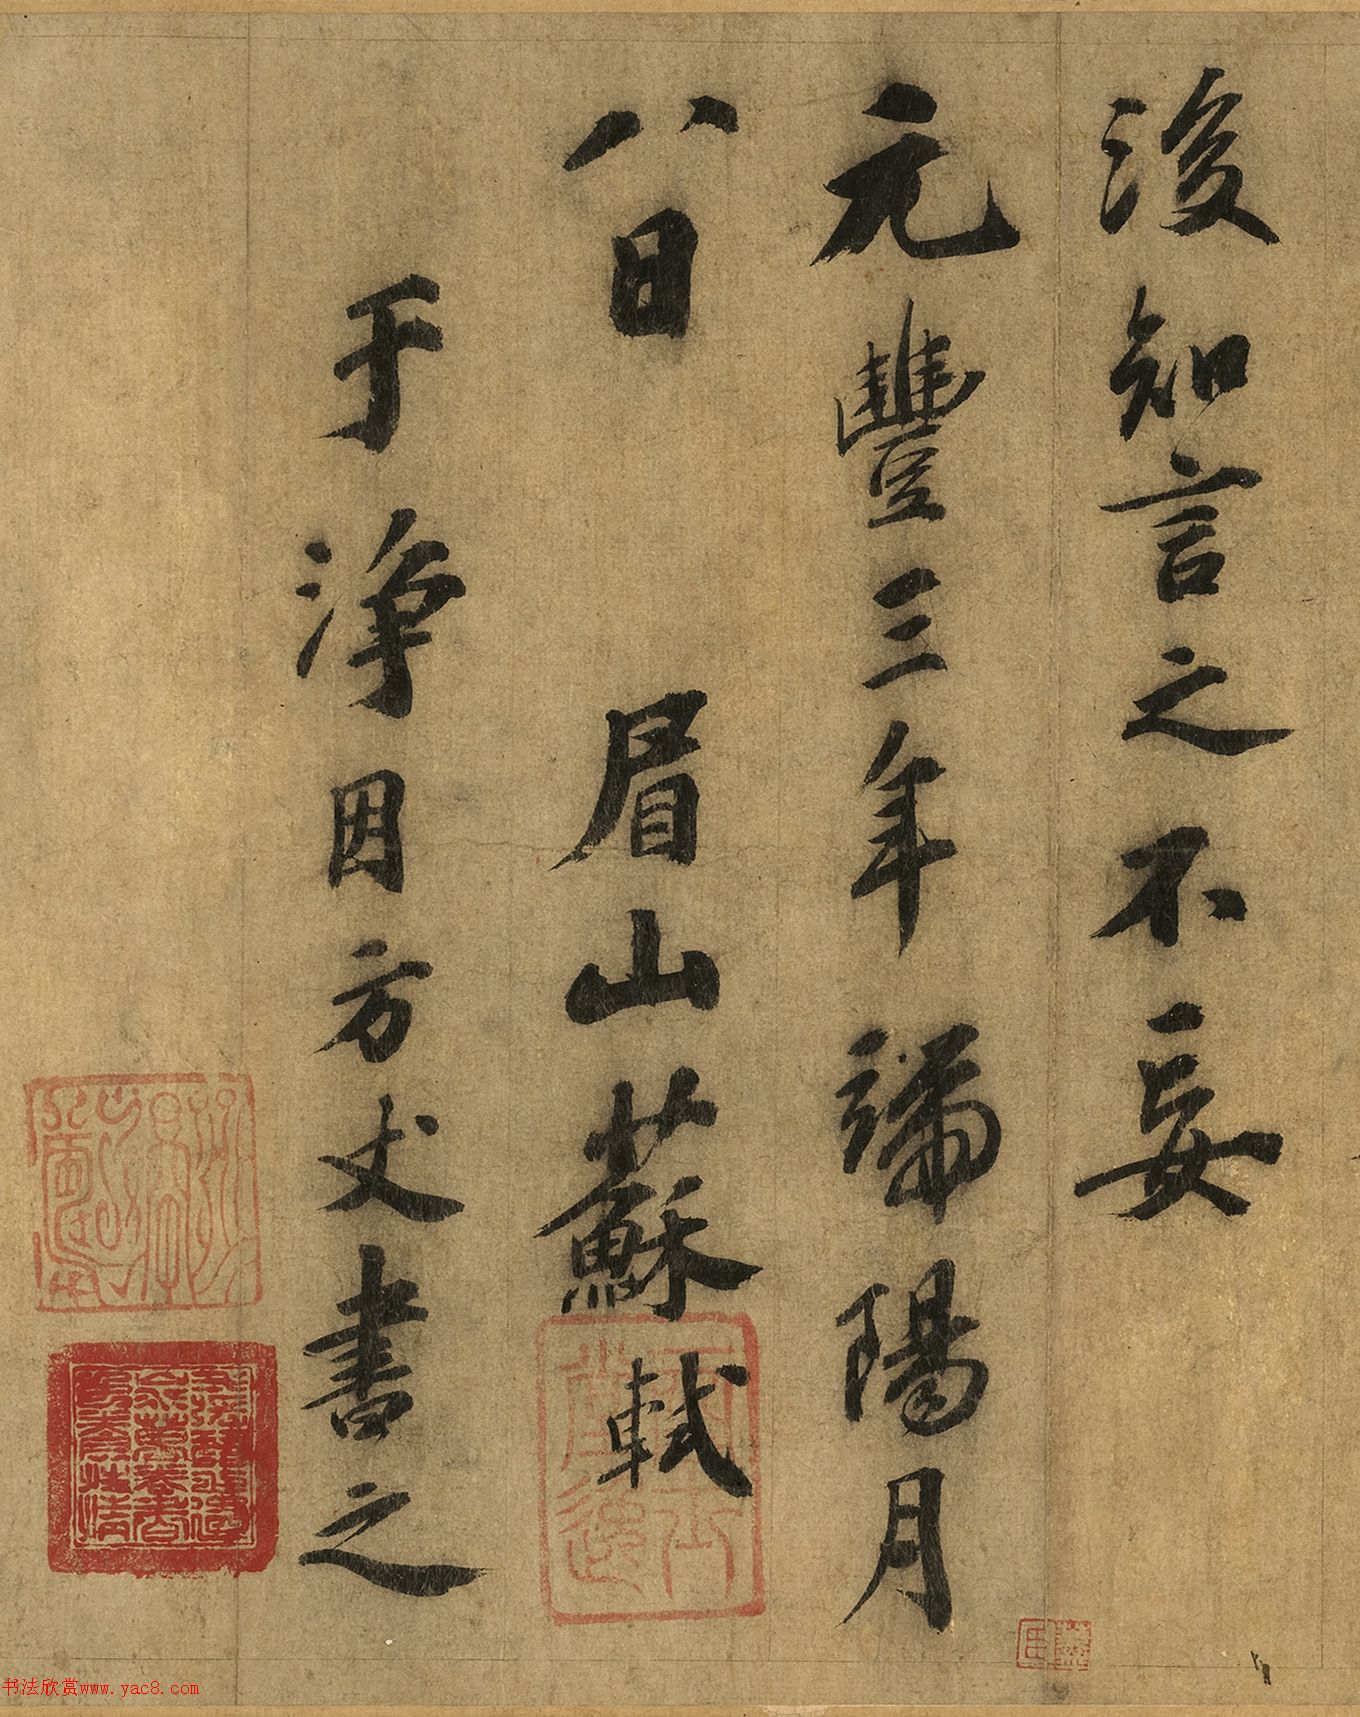 後知言之不妄
元豐三年端陽月
八日 眉山蘇軾
于淨因方丈書之
书法欣赏www.yac8.com